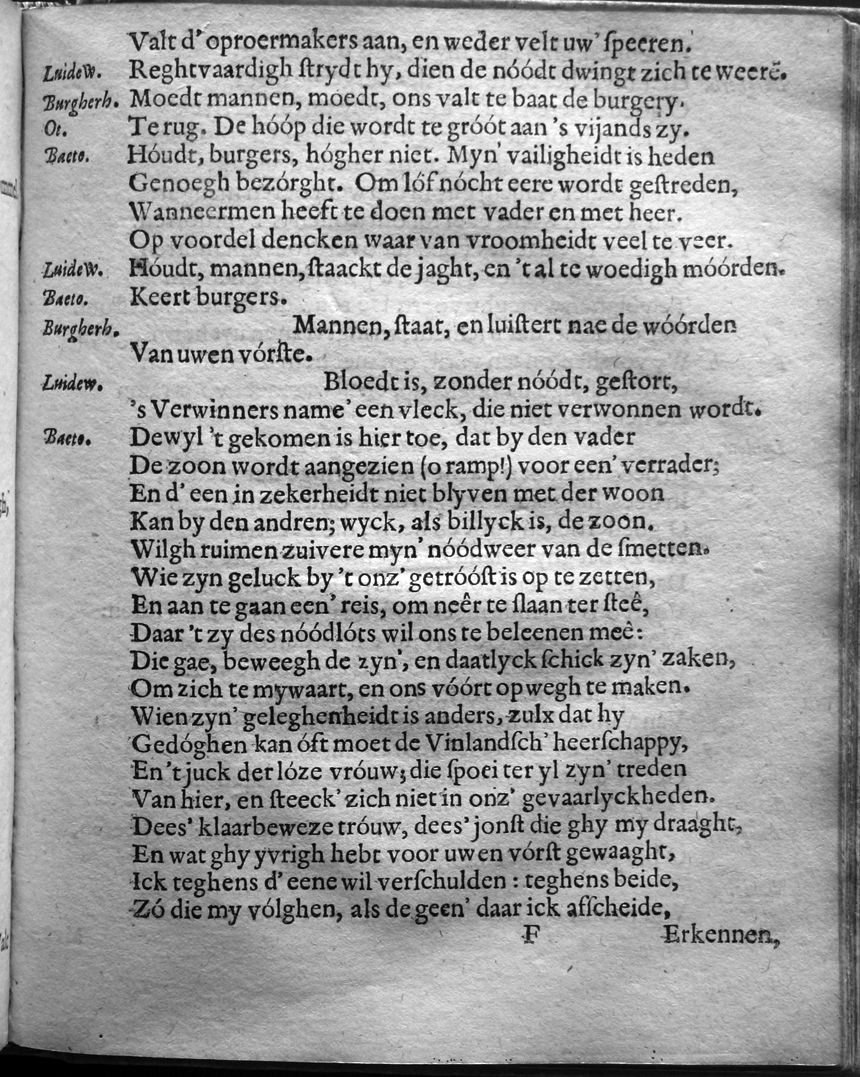 Valt d' oproermakers aan, en weder velt uw' ſpeeren.
LuideW. Reghtvaardigh ſtrydt hy, dien de nóódt dwingt zich te weerē.
Burgherh. Moedt mannen, moedt, ons valt te baat de burgery.
Ot. Terug. De hóóp die wordt te gróót aan 's vijands zy.
Baeto. Hóudt, burgers, hógher niet. Myn' vailigheidt is heden
Genoegh bezórght. Om lóf nócht eere wordt geſtreden,
Wanneermen heeft te doen met vader en met heer.
Op voordel dencken waar van vroomheidt veel te veer.
LuideW. Hóudt, mannen, ſtaackt de jaght, en 't al te woedigh móórden.
Baeto. Keert burgers.
Burgherh. Mannen, ſtaat, en luiſtert nae de wóórden
Van uwen vórſte.
Luidew. Bloedt is, zonder nóódt, geſtort,
's Verwinners name' een vleck, die niet verwonnen wordt.
Baeto. Dewyl 't gekomen is hier toe, dat by den vader
De zoon wordt aangezien (o ramp!) voor een' verrader;
En d' een in zekerheidt niet blyven met der woon
Kan by den andren; wyck, als billyck is, de zoon.
Wilgh ruimen zuivere myn' nóódweer van de ſmetten.
Wie zyn geluck by 't onz' getróóſt is op te zetten,
En aan te gaan een' reis, om neêr te ſlaan ter ſteê,
Daar 't zy des nóódlóts wil ons te beleenen meê:
Die gae, beweegh de zyn', en daatlyck ſchick zyn' zaken,
Om zich te mywaart, en ons vóórt op wegh te maken.
Wien zyn' geleghenheidt is anders, zulx dat hy
Gedóghen kan óft moet de Vinlandſch' heerſchappy,
En 't juck der lóze vróuw; die ſpoei ter yl zyn' treden
Van hier, en ſteeck' zich niet in onz' gevaarlyckheden.
Dees' klaarbeweze tróuw, dees' jonſt die ghy my draaght,
En wat ghy yvrigh hebt voor uwen vórſt gewaaght,
Ick teghens d' eene wil verſchulden : teghens beide,
Zó die my vólghen, als de geen' daar ick afſcheide,
F Erkennen,